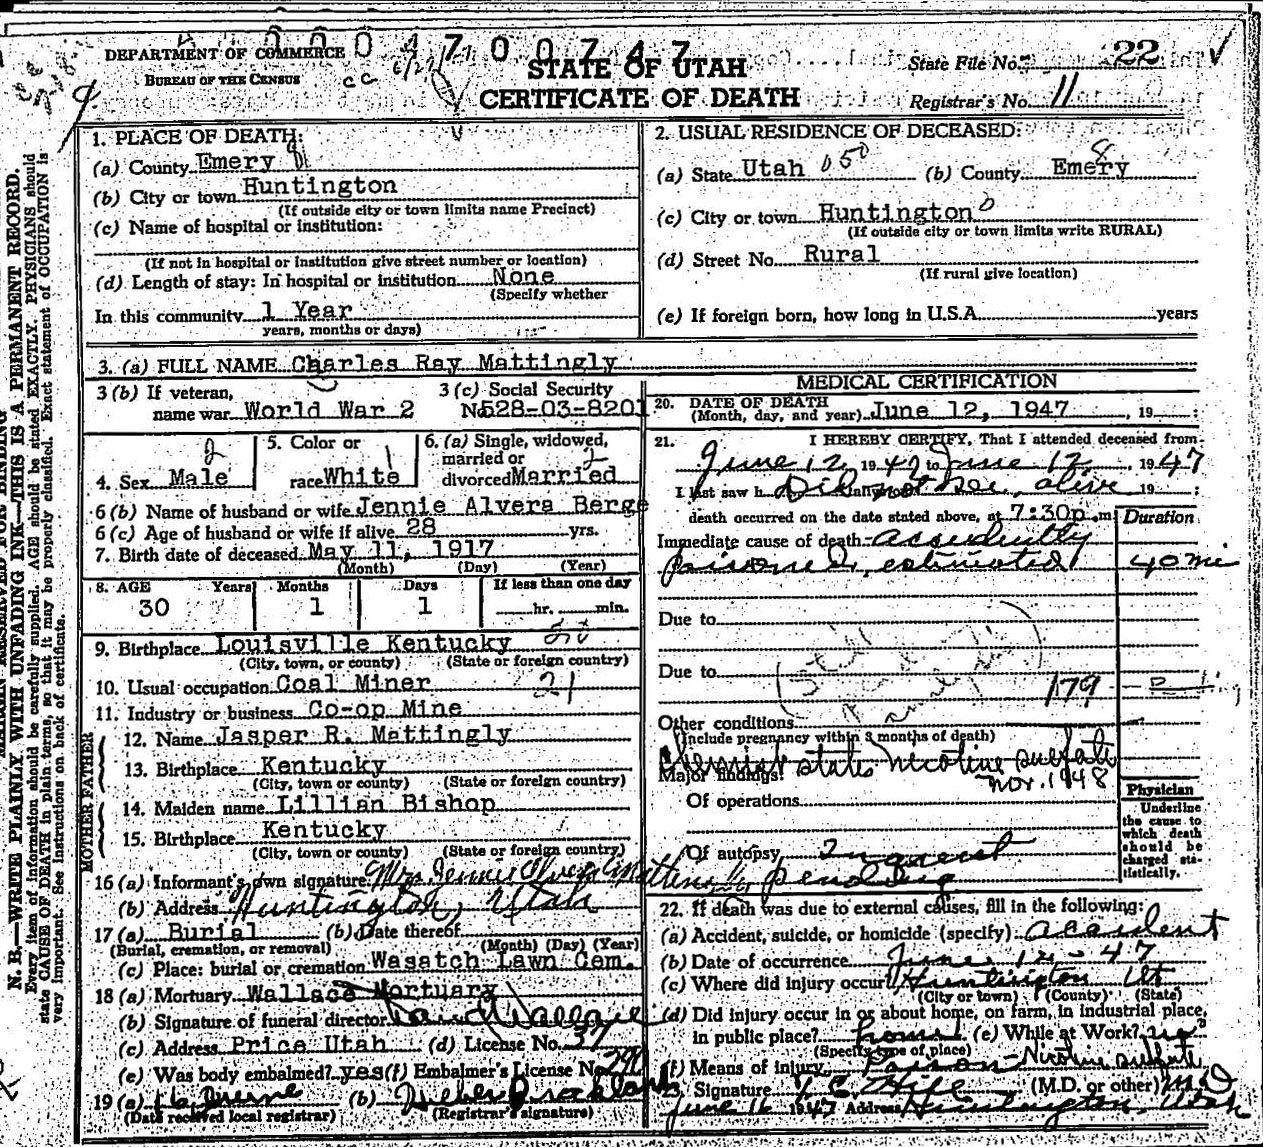 0 0 0 4 7 0 0 7 4 7
DEPARTMENT OF COMMERCE
BUREAU OF THE CENSUS
STATE OF UTAH
CERTIFICATE OF DEATH
State File No. 22
Registrar's No. 11
N. B.—WRITE PLAINLY WITH UNFADING INK—THIS IS A PERMANENT RECORD.
Every item of information should be carefully supplied. AGE should be stated EXACTLY. PHYSICIANS should
state CAUSE OF DEATH in plain terms, so that it may be properly classified. Exact statement of OCCUPATION is
very important. See instructions on back of certificate.
1. PLACE OF DEATH:
(a) County Emery
(b) City or town Huntington
(If outside city or town limits name Precinct)
(c) Name of hospital or institution:
(If not in hospital or institution give street number or location)
(d) Length of stay: In hospital or institution None
(Specify whether
In this community 1 Year
years, months or days)
2. USUAL RESIDENCE OF DECEASED:
(a) State Utah 050 (b) County Emery
(c) City or town Huntington 0
(If outside city or town limits write RURAL)
(d) Street No. Rural
(If rural give location)
(e) If foreign born, how long in U.S.A. years
3. (a) FULL NAME Charles Ray Mattingly
3 (b) If veteran, name war World War 2
3 (c) Social Security No. 528-03-8201
4. Sex Male 2
5. Color or race White 1
6. (a) Single, widowed, married or divorced Married 2
6 (b) Name of husband or wife Jennie Alvera Berge
6 (c) Age of husband or wife if alive 28 yrs.
7. Birth date of deceased May 11, 1917
(Month) (Day) (Year)
8. AGE Years Months Days If less than one day
30 1 1 hr. min.
9. Birthplace Louisville Kentucky
(City, town, or county) (State or foreign country)
10. Usual occupation Coal Miner 21
11. Industry or business Co-op Mine
FATHER
12. Name Jasper R. Mattingly
13. Birthplace Kentucky
(City, town or county) (State or foreign country)
MOTHER
14. Maiden name Lillian Bishop
15. Birthplace Kentucky
(City, town or county) (State or foreign country)
16 (a) Informant's own signature Mrs Jennie Alvera Mattingly
(b) Address Huntington, Utah
17 (a) Burial (b) Date thereof
(Burial, cremation, or removal) (Month) (Day) (Year)
(c) Place: burial or cremation Wasatch Lawn Cem.
18 (a) Mortuary Wallace Mortuary
(b) Signature of funeral director Wallace
(c) Address Price Utah (d) License No. 37
(e) Was body embalmed? yes (f) Embalmer's License No. 290
19 (a) June (b)
(Date received local registrar) (Registrar's signature)
MEDICAL CERTIFICATION
20. DATE OF DEATH
(Month, day, and year) June 12, 1947, 19
21. I HEREBY CERTIFY, That I attended deceased from
June 12, 1947 to June 12, 1947
I last saw h Did not see alive 19
death occurred on the date stated above, at 7:30p.m.
Duration
Immediate cause of death accidently
poisoned, estimated 40 mi
Due to
Due to
(Still
179
Other conditions
(Include pregnancy within 3 months of death)
Chemist states Nicotine sulfate
Nov. 1948
Major findings:
Of operations
Of autopsy Inquest
pending
Physician
Underline
the cause to
which death
should be
charged sta-
tistically.
22. If death was due to external causes, fill in the following:
(a) Accident, suicide, or homicide (specify) accident
(b) Date of occurrence June 12-47
(c) Where did injury occur? Huntington Ut
(City or town) (County) (State)
(d) Did injury occur in or about home, on farm, in industrial place,
in public place? home (e) While at Work? no
(Specify type of place)
(f) Means of injury Poison - Nicotine sulfate
23. Signature (M.D. or other) MD
June 16 1947 Address Huntington, Utah